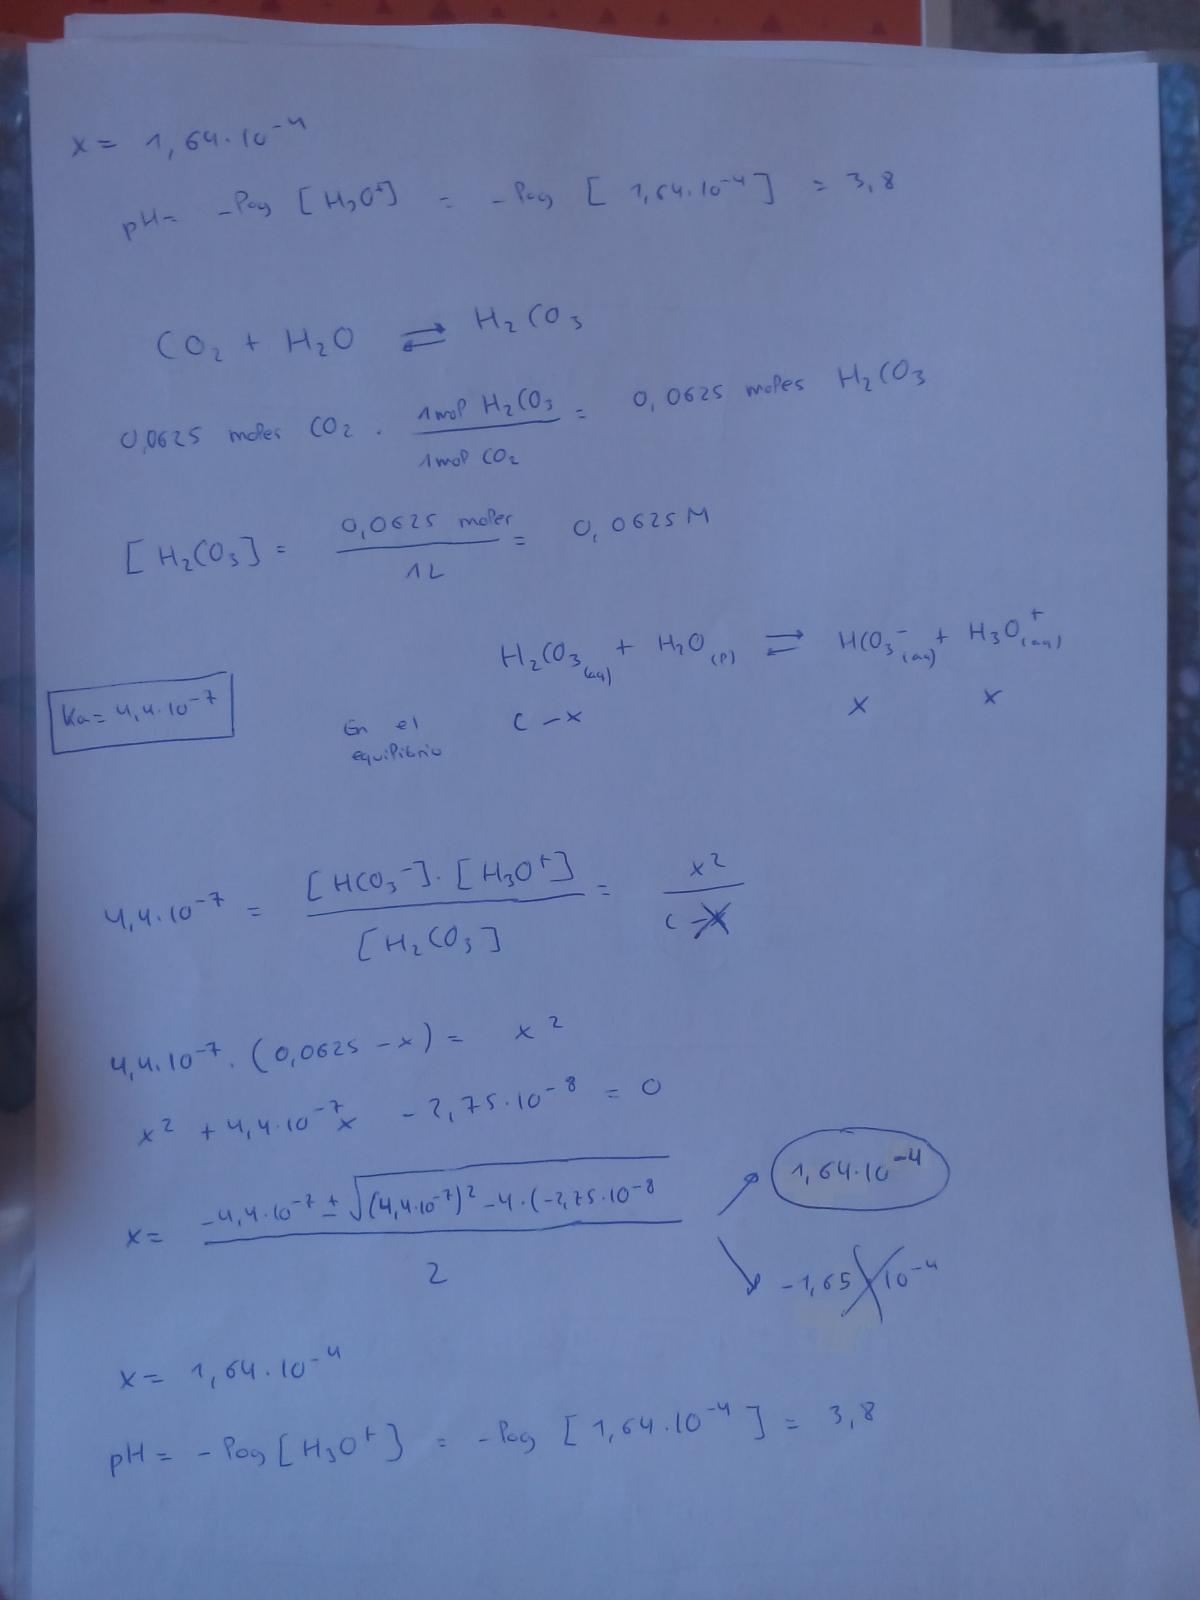 x = 1,64·10⁻⁴
pH = -log [H₃O⁺] = -log [1,64·10⁻⁴] = 3,8
CO₂ + H₂O ⇌ H₂CO₃
0,0625 moles CO₂ · 1mol H₂CO₃ / 1mol CO₂ = 0,0625 moles H₂CO₃
[H₂CO₃] = 0,0625 moles / 1L = 0,0625 M
H₂CO₃(aq) + H₂O(l) ⇌ HCO₃⁻(aq) + H₃O⁺(aq)
Ka = 4,4·10⁻⁷
En el equilibrio c-x x x
4,4·10⁻⁷ = [HCO₃⁻]·[H₃O⁺] / [H₂CO₃] = x² / c-x
4,4·10⁻⁷·(0,0625-x) = x²
x² + 4,4·10⁻⁷x - 2,75·10⁻⁸ = 0
x = -4,4·10⁻⁷ ± √(4,4·10⁻⁷)² - 4·(-2,75·10⁻⁸ / 2
1,64·10⁻⁴
-1,65 10⁻⁴
x = 1,64·10⁻⁴
pH = -log [H₃O⁺] = -log [1,64·10⁻⁴] = 3,8